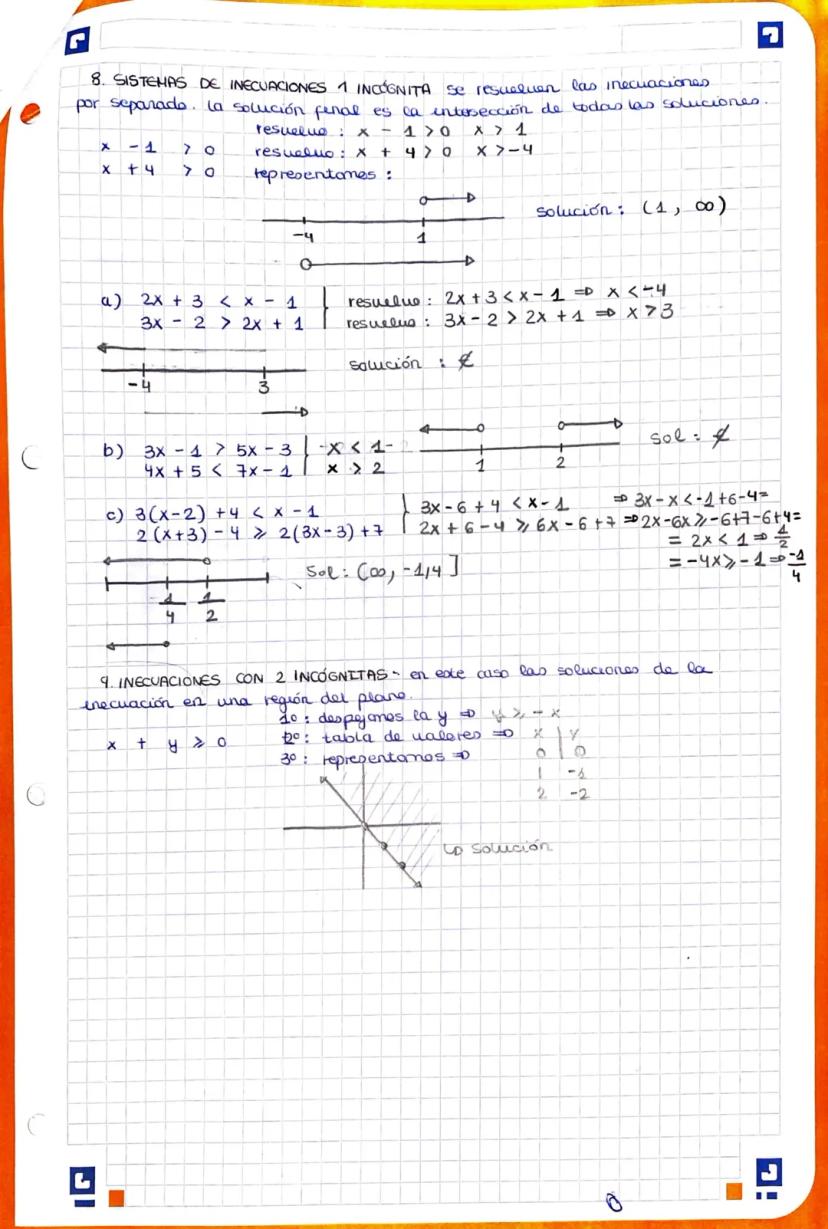 8. SISTEMAS DE INECUACIONES 1 INCÓGNITA se resuelven las inecuaciones
por separado. La solución final es la intersección de todas las soluciones.
resuelvo : x - 1 > 0 x > 1
x - 1 > 0 resuelvo : x + 4 > 0 x > -4
x + 4 > 0 representamos :
solución : (1, ∞)
-4 1
a) 2x + 3 < x - 1 resuelvo : 2x + 3 < x - 1 ⇒ x < -4
3x - 2 > 2x + 1 resuelvo : 3x - 2 > 2x + 1 ⇒ x > 3
solución : ∉
-4 3
b) 3x - 1 > 5x - 3 -x < 1- sol : ∉
4x + 5 < 7x - 1 x > 2
1 2
c) 3(x-2) + 4 < x - 1 3x - 6 + 4 < x - 1 ⇒ 3x - x < -1 + 6 - 4 =
2(x+3) - 4 ≥ 2(3x-3) + 7 2x + 6 - 4 ≥ 6x - 6 + 7 ⇒ 2x - 6x ≥ -6 + 7 - 6 + 4 =
= 2x < 1 ⇒ 1/2
= -4x ≥ -1 ⇒ -1/4
Sol : (∞, -1/4]
-1/4 1/2
9. INECUACIONES CON 2 INCÓGNITAS - en este caso las soluciones de la
inecuación en una región del plano.
1º : despejamos la y ⇒ y ≥ -x
x + y ≥ 0 2º : tabla de valores ⇒ x y
3º : representamos ⇒ 0 0
1 -1
2 -2
↳ solución